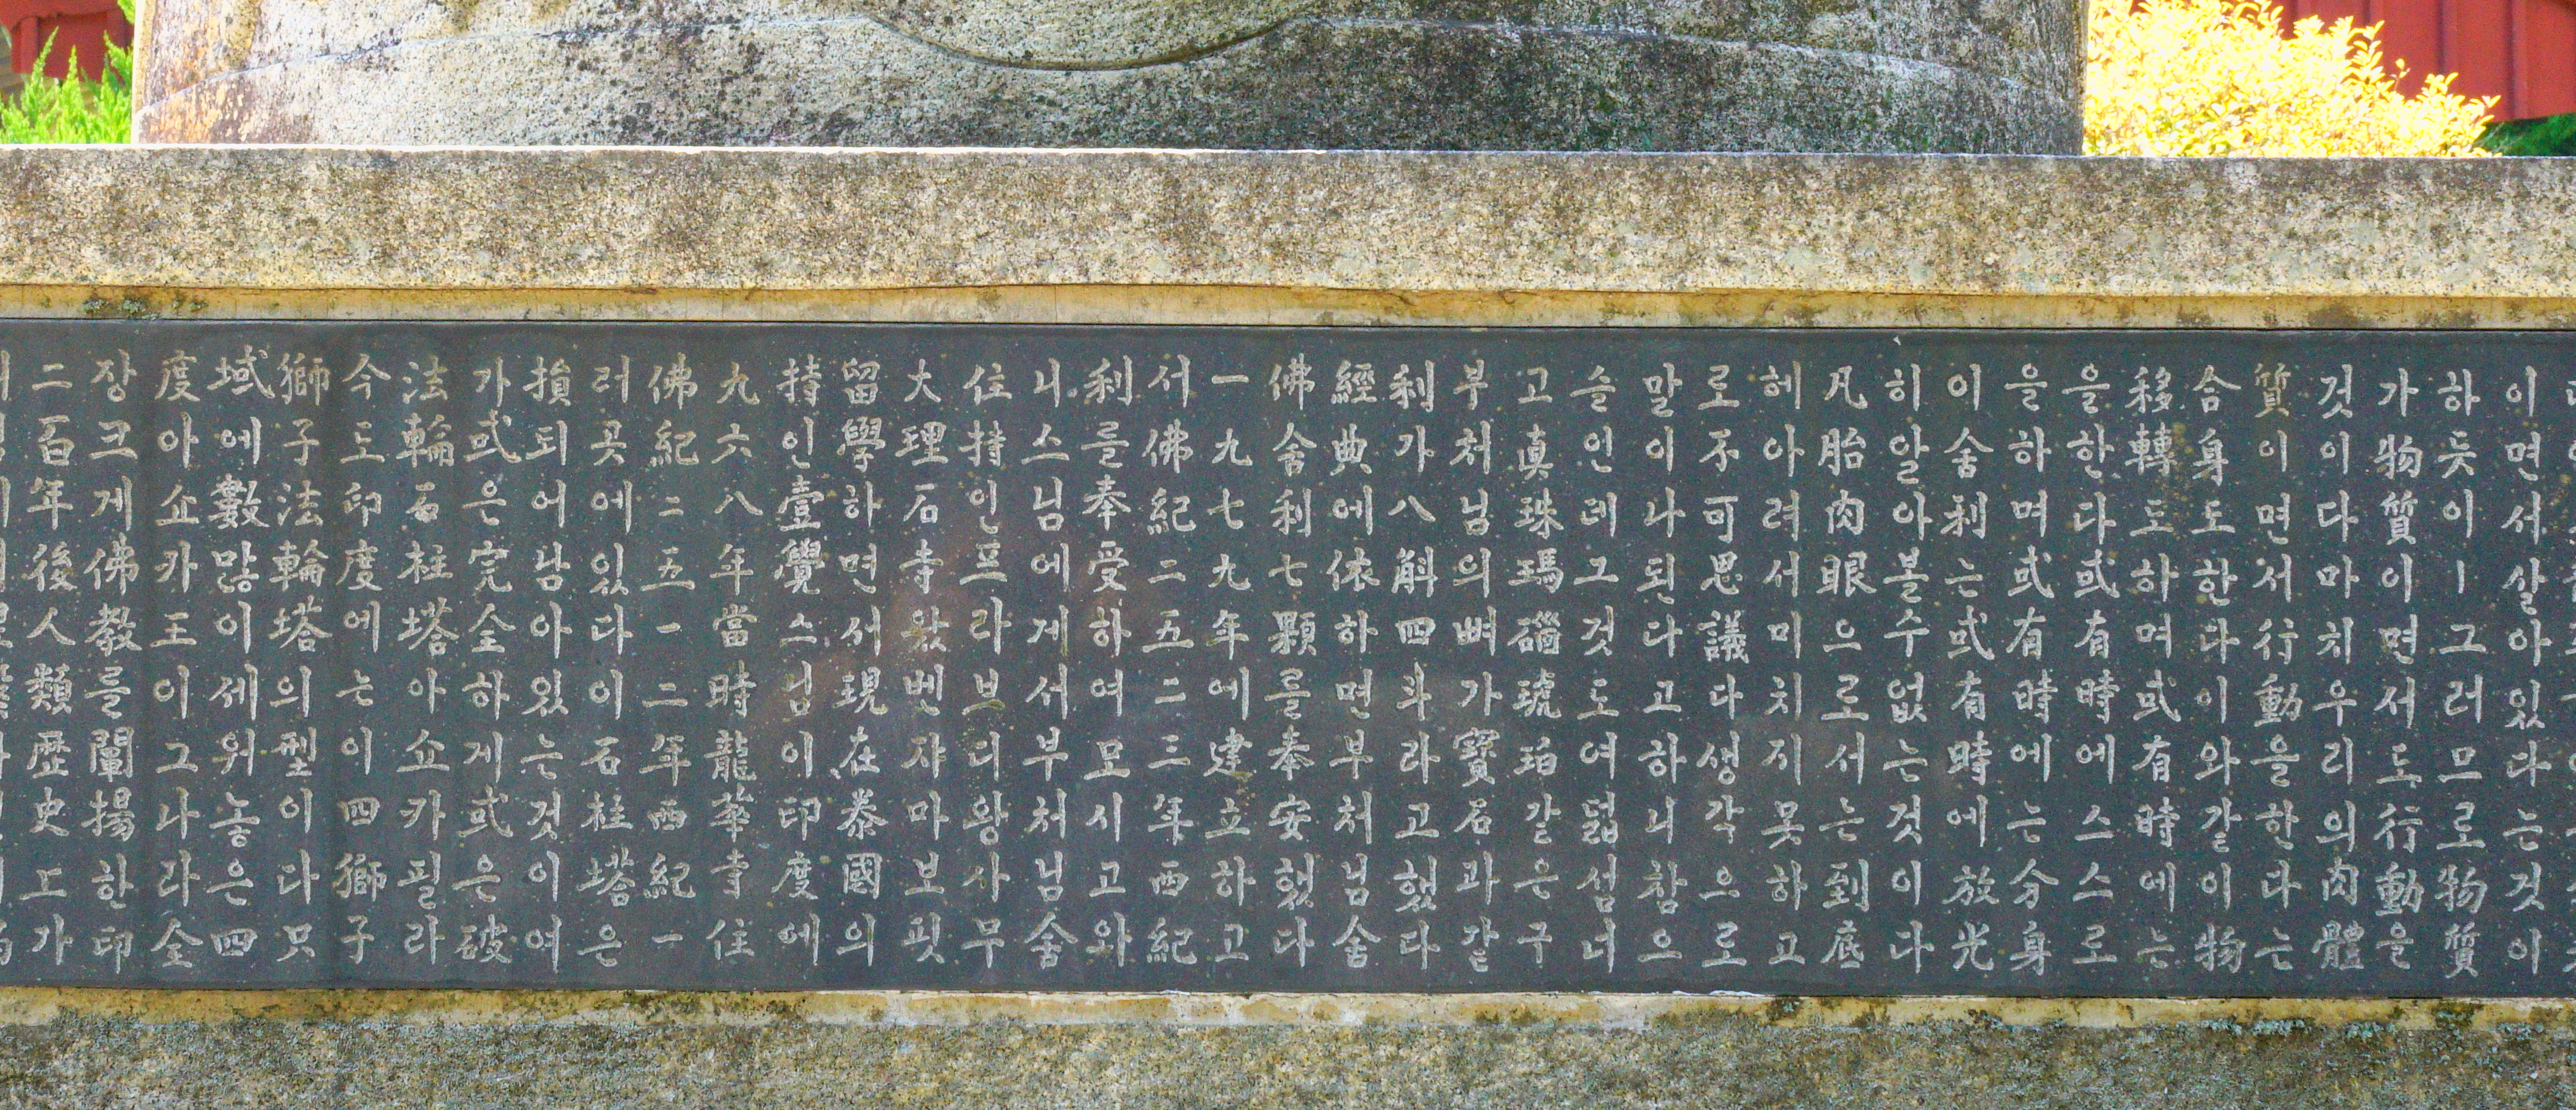 이면서살아있다는것이
하듯이ㅣ그러므로物質
가物質이면서도行動을
것이다마치우리의肉體
質이면서行動을한다는
合身도한다이와갈이物
移轉도하며或有時에는
을한다或有時에스스로
을하며或有時에는分身
이舍利는或有時에放光
히알아볼수없는것이다
凡胎肉眼으로서는到底
헤아려서미치지못하고
로不可思議다생각으로
말이나된다고하니참으
슬인데그것도여덟섬너
고眞珠瑪瑙琥珀갈은구
부처님의뼈가寶石과같
利가八斛四斗라고했다
經典에依하면부처님舍
佛舍利七顆를奉安했다
一九七九年에建立하고
서佛紀二五二三年西紀
利를奉受하여모시고와
니스님에게서부처님舍
住持인프라브디왕사무
大理石寺왓벤쟈마보핏
留學하면서現在泰國의
持인壹覺스님이印度에
九六八年當時龍華寺住
佛紀二五一二年西紀一
러곳에있다이石柱塔은
損되어남아있는것이여
가或은完全하게或은破
法輪石柱塔아쇼카필라
今도印度에는이四獅子
獅子法輪塔의型이다只
域에數많이세워놓은四
度아쇼카王이그나라全
장크게佛教를闡揚한印
二百年後人類歷史上가